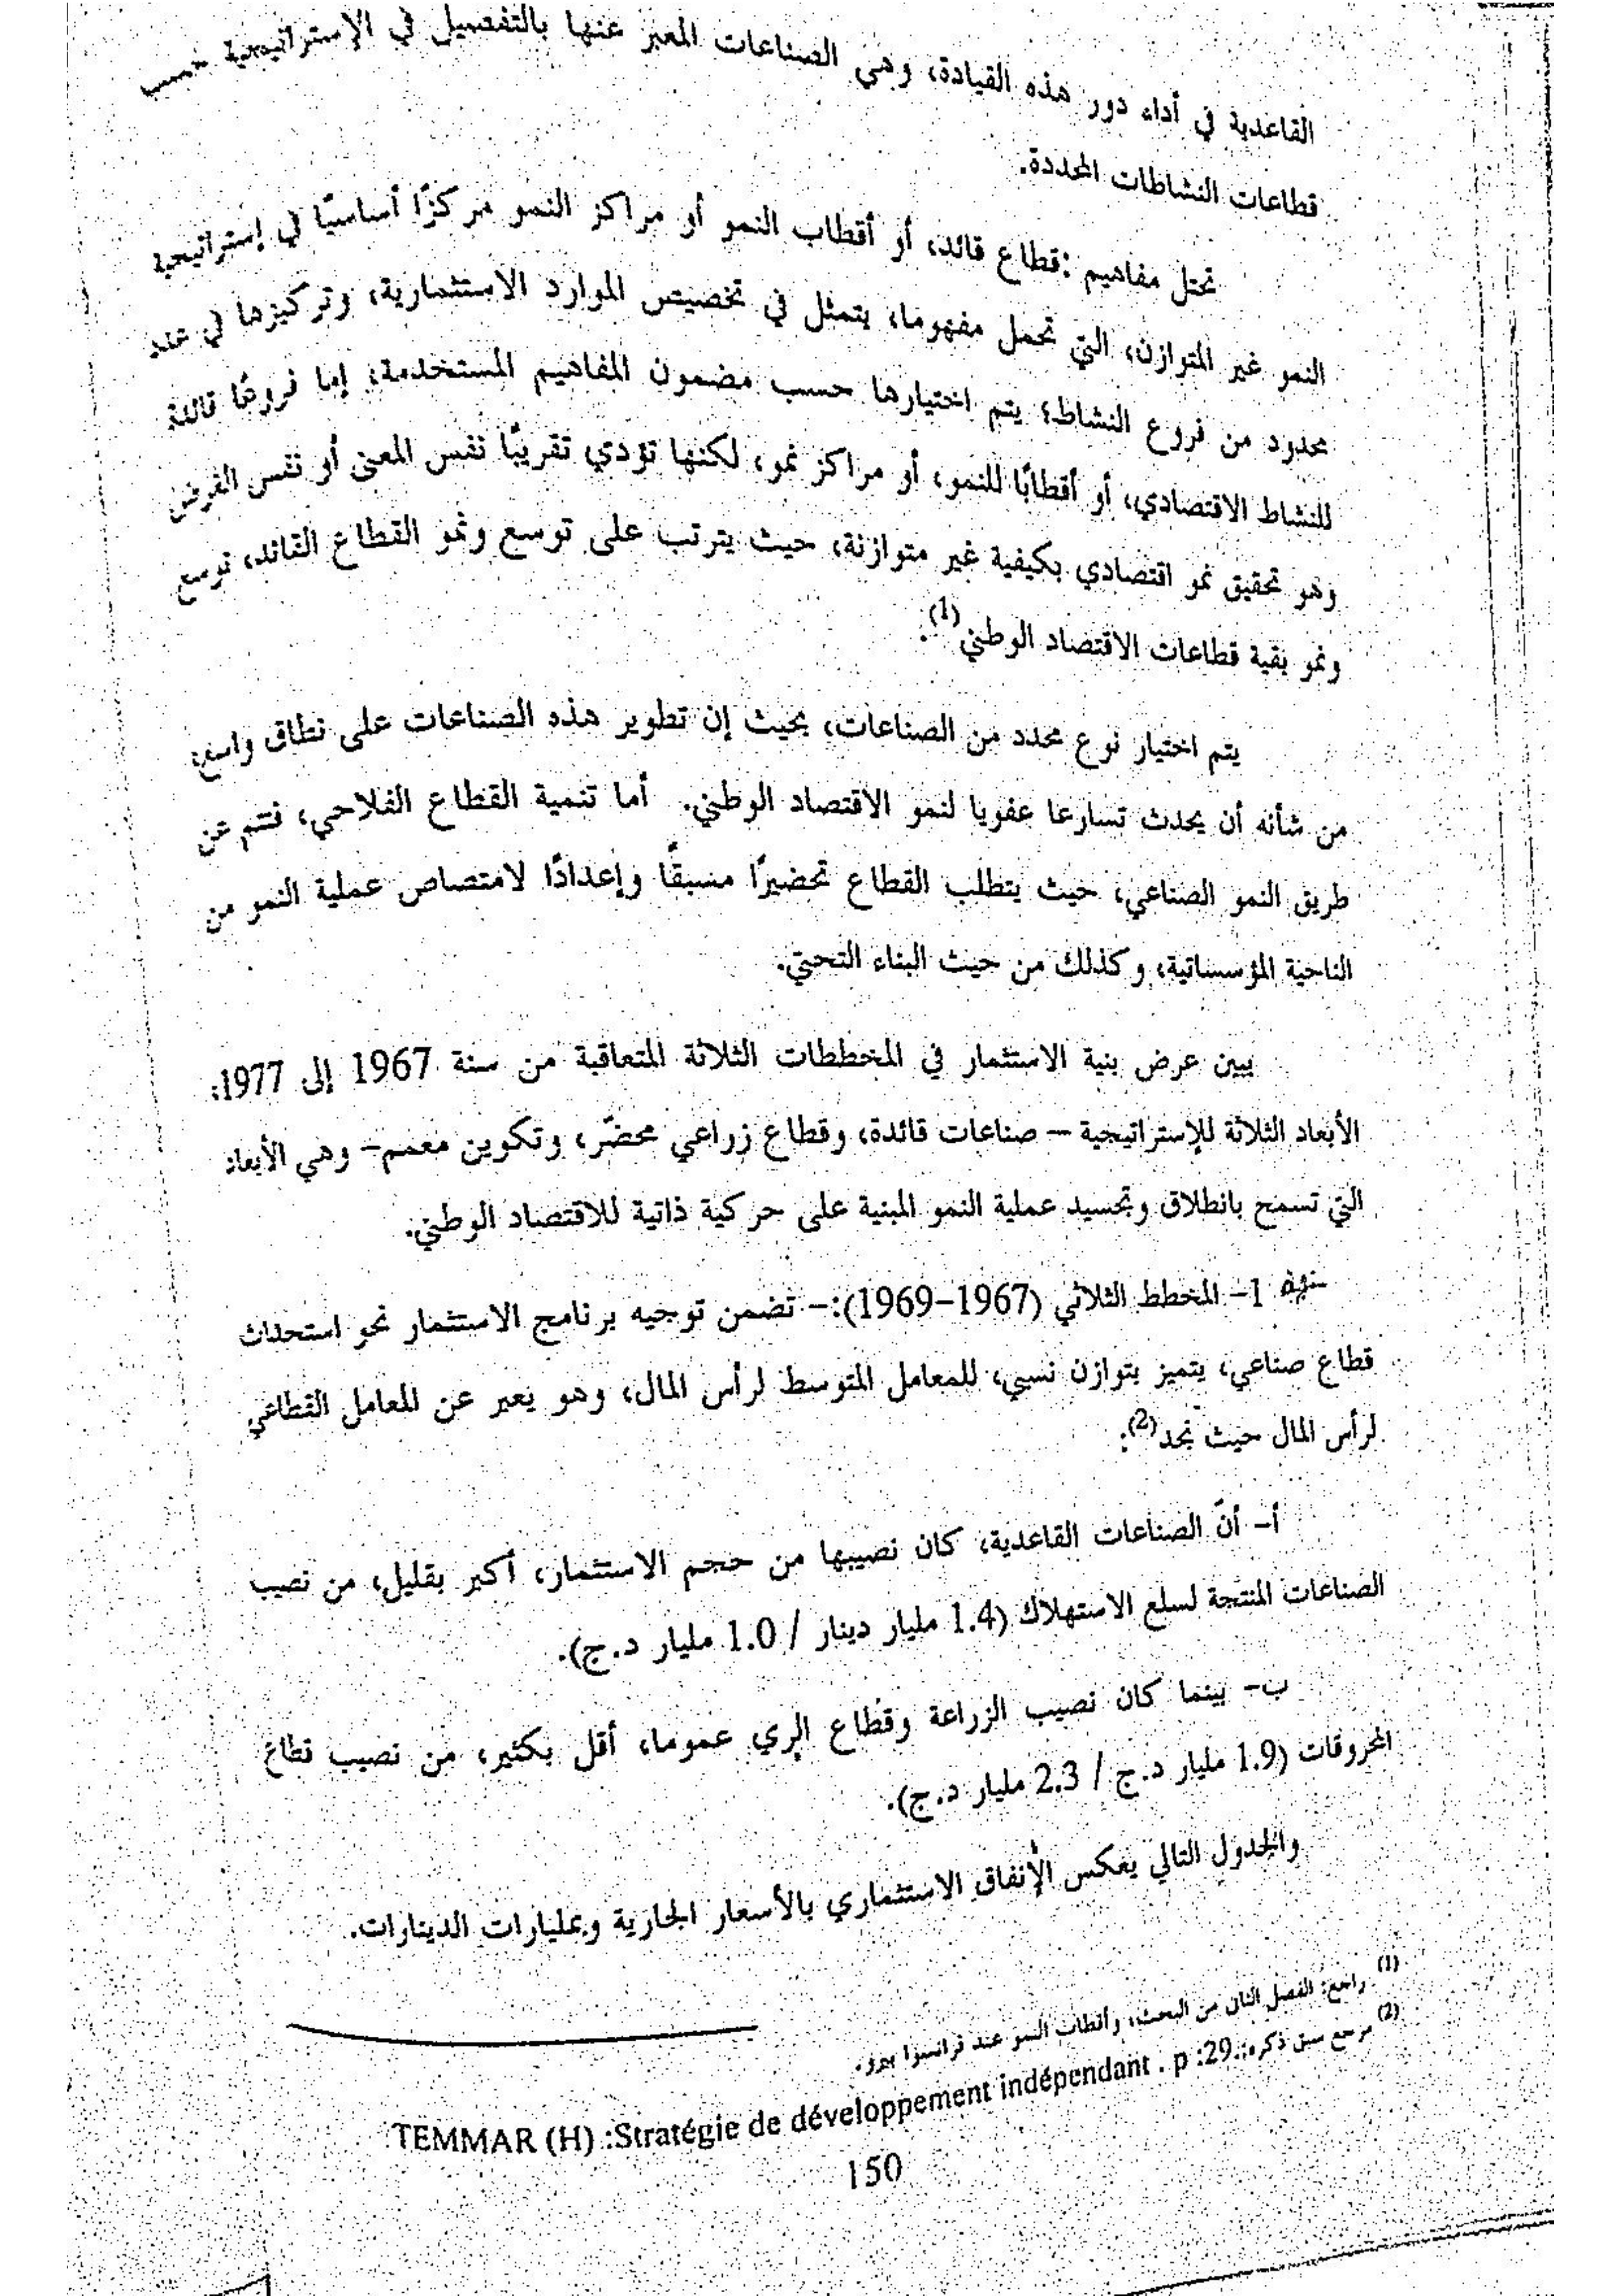 القاعدية في أداء دور هذه القيادة، وهي الصناعات المعبر عنها بالتفصيل في الإستراتيجية حسب
قطاعات النشاطات المحددة.
تحتل مفاهيم :قطاع قائد، أو أقطاب النمو أو مراكز النمو مركزًا أساسيًا في إستراتيجية
النمو غير المتوازن، التي تحمل مفهوما، يتمثل في تخصيص الموارد الاستثمارية، وتركيزها في عدد
محدود من فروع النشاط؛ يتم اختيارها حسب مضمون المفاهيم المستخدمة، إما فروعًا قائدة
للنشاط الاقتصادي، أو أقطابًا للنمو، أو مراكز نمو، لكنها تؤدي تقريبًا نفس المعنى أو نفس الغرض
وهو تحقيق نمو اقتصادي بكيفية غير متوازنة، حيث يترتب على توسع ونمو القطاع القائد، توسع
ونمو بقية قطاعات الاقتصاد الوطني(1).
يتم اختيار نوع محدد من الصناعات، بحيث إن تطوير هذه الصناعات على نطاق واسع،
من شأنه أن يحدث تسارعا عفويا لنمو الاقتصاد الوطني. أما تنمية القطاع الفلاحي، فتتم عن
طريق النمو الصناعي، حيث يتطلب القطاع تحضيرًا مسبقًا وإعدادًا لامتصاص عملية النمو من
الناحية المؤسساتية، وكذلك من حيث البناء التحتي.
يبين عرض بنية الاستثمار في المخططات الثلاثة المتعاقبة من سنة 1967 إلى 1977،
الأبعاد الثلاثة للإستراتيجية – صناعات قائدة، وقطاع زراعي محضّر، وتكوين معمم– وهي الأبعاد
التي تسمح بانطلاق وتجسيد عملية النمو المبنية على حركية ذاتية للاقتصاد الوطني.
1– المخطط الثلاثي (1967–1969):– تضمن توجيه برنامج الاستثمار نحو استحداث
قطاع صناعي، يتميز بتوازن نسبي، للمعامل المتوسط لرأس المال، وهو يعبر عن المعامل القطاعي
لرأس المال حيث نجد(2):
أ– أنّ الصناعات القاعدية، كان نصيبها من حجم الاستثمار، أكبر بقليل، من نصيب
الصناعات المنتجة لسلع الاستهلاك (1.4 مليار دينار / 1.0 مليار د.ج).
ب– بينما كان نصيب الزراعة وقطاع الري عموما، أقل بكثير، من نصيب قطاع
المحروقات (1.9 مليار د.ج / 2.3 مليار د.ج).
والجدول التالي يعكس الإنفاق الاستثماري بالأسعار الجارية وبمليارات الدينارات.
(1) راجع: الفصل الثان من البحث، وأقطاب النمو عند فرانسوا بيرو.
(2) مرجع سبق ذكره:
TEMMAR (H) :Stratégie de développement indépendant . p :29.
150